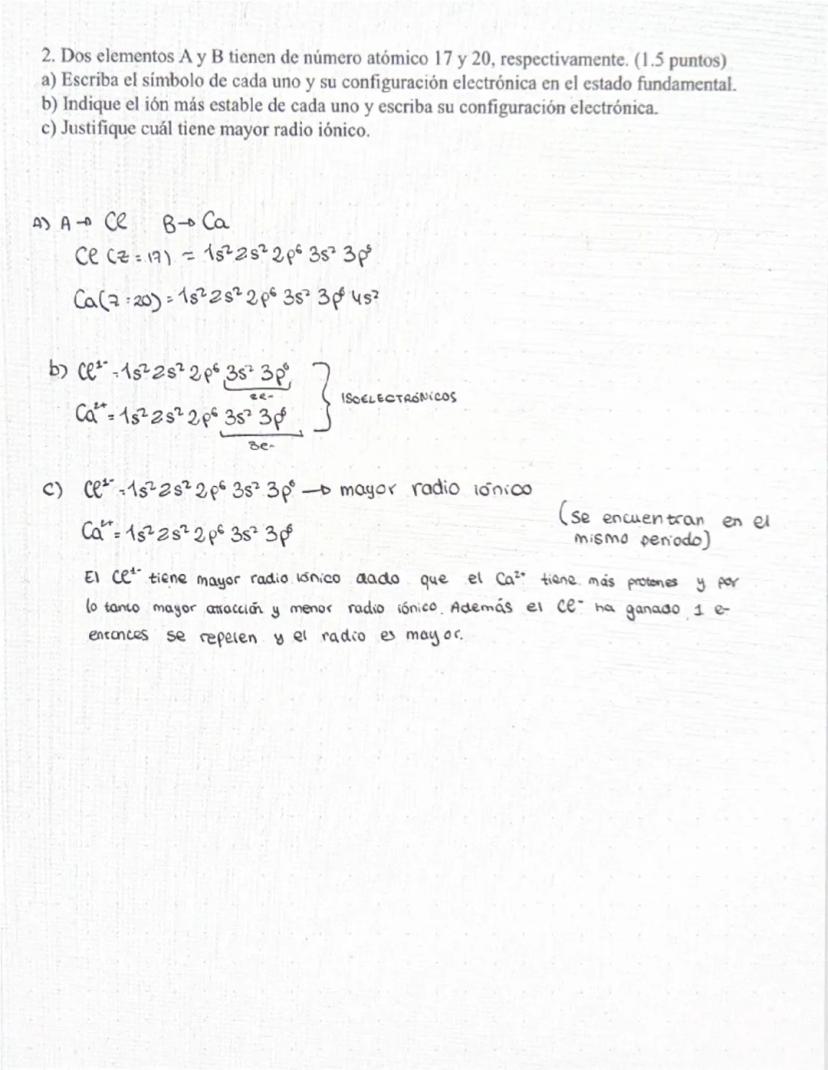 2. Dos elementos A y B tienen de número atómico 17 y 20, respectivamente. (1.5 puntos)
a) Escriba el símbolo de cada uno y su configuración electrónica en el estado fundamental.
b) Indique el ión más estable de cada uno y escriba su configuración electrónica.
c) Justifique cuál tiene mayor radio iónico.
A) A → Cl B → Ca
Cl (Z = 17) = 1s² 2s² 2p⁶ 3s² 3p⁵
Ca (Z = 20) = 1s² 2s² 2p⁶ 3s² 3p⁶ 4s²
b) Cl¹⁻ = 1s² 2s² 2p⁶ 3s² 3p⁶
8e-
ISOELECTRÓNICOS
Ca²⁺ = 1s² 2s² 2p⁶ 3s² 3p⁶
8e-
c) Cl¹⁻ = 1s² 2s² 2p⁶ 3s² 3p⁶ → mayor radio iónico
Ca²⁺ = 1s² 2s² 2p⁶ 3s² 3p⁶
(se encuentran en el
mismo periodo)
El Cl¹⁻ tiene mayor radio iónico dado que el Ca²⁺ tiene más protones y por
lo tanto mayor atracción y menor radio iónico. Además el Cl⁻ ha ganado 1 e-
entonces se repelen y el radio es mayor.